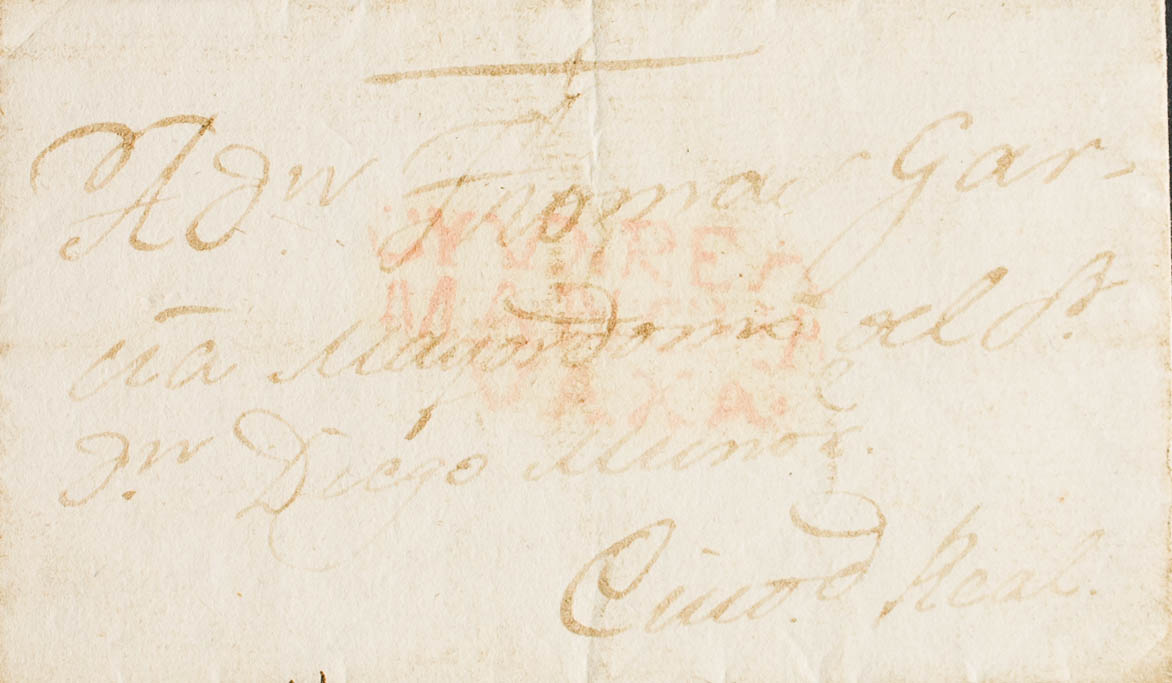 A Dn Thomas Gar-
cia Mayordomo del Sr.
Dn. Diego Munoz.
Ciud.d Real.
BAXA